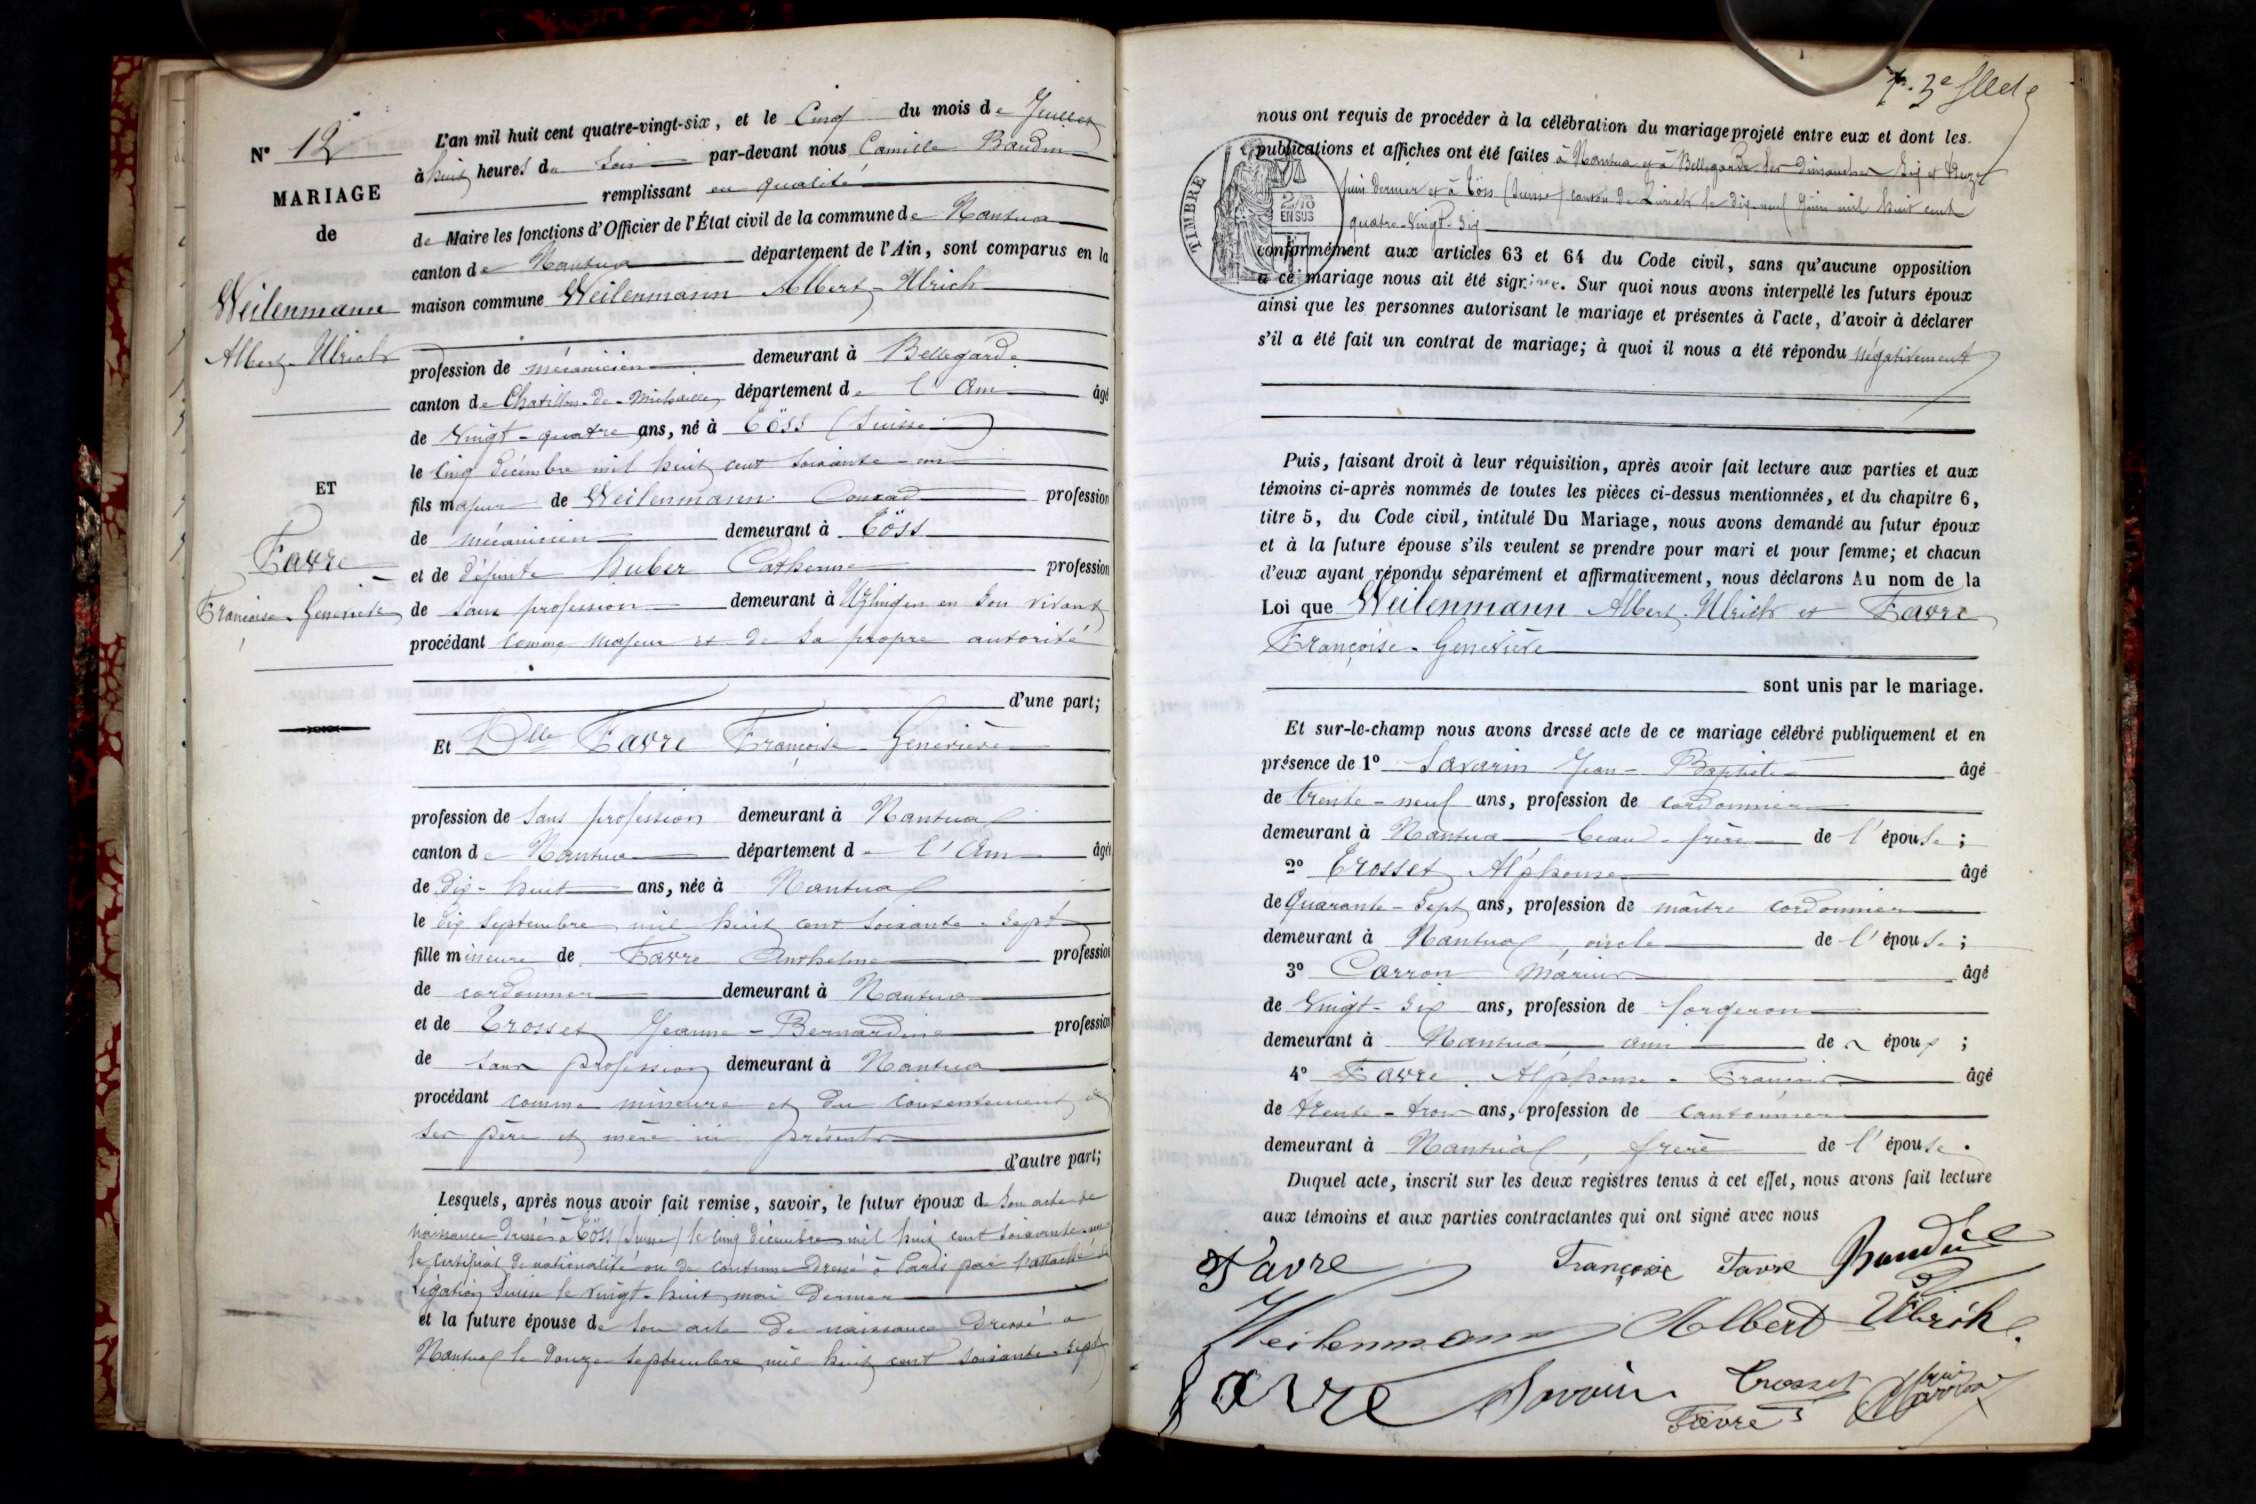 N° 12
MARIAGE
de
Weilenmann
Albert-Ulrich
ET
Favre
Françoise-Geneviève
L'an mil huit cent quatre-vingt-six, et le Cinq du mois de Juillet
à huit heures du Soir par-devant nous Camille Baudin
remplissant en qualité
de Maire les fonctions d'Officier de l'État civil de la commune de Nantua
canton de Nantua département de l'Ain, sont comparus en la
maison commune Weilenmann Albert-Ulrich
profession de mécanicien demeurant à Bellegarde
canton de Chatillon-de-Michaille département de l'Ain âgé
de Vingt-quatre ans, né à Töss (Suisse)
le cinq décembre mil huit cent soixante-un
fils majeur de Weilenmann Conrad profession
de mécanicien demeurant à Töss
et de défunte Huber Catherine profession
de sans profession demeurant à en son vivant
procédant comme majeur et de sa propre autorité
d'une part;
Et Dlle Favre Françoise-Geneviève
profession de sans profession demeurant à Nantua
canton de Nantua département de l'Ain âgée
de dix-huit ans, née à Nantua
le dix Septembre mil huit cent soixante-sept
fille mineure de Favre Anthelme profession
de cordonnier demeurant à Nantua
et de Trosset Jeanne-Bernardine profession
de sans profession demeurant à Nantua
procédant comme mineure et du consentement de
ses père et mère ici présents
d'autre part;
Lesquels, après nous avoir fait remise, savoir, le futur époux de son acte de
naissance dressé à Töss (Suisse) le cinq décembre mil huit cent soixante-un
le certificat de nationalité ou de coutume dressé à Paris par l'attaché de
Légation Suisse le vingt-huit mai dernier
et la future épouse de son acte de naissance dressé à
Nantua le douze Septembre mil huit cent soixante-sept
nous ont requis de procéder à la célébration du mariage projeté entre eux et dont les
publications et affiches ont été faites à Nantua et à Bellegarde les dimanches Six et Treize
juin dernier et à Töss (Suisse) canton de Zurich le dix-neuf juin mil huit cent
quatre-vingt-six
TIMBRE
EN SUS
conformément aux articles 63 et 64 du Code civil, sans qu'aucune opposition
à ce mariage nous ait été signifiée. Sur quoi nous avons interpellé les futurs époux
ainsi que les personnes autorisant le mariage et présentes à l'acte, d'avoir à déclarer
s'il a été fait un contrat de mariage; à quoi il nous a été répondu négativement
Puis, faisant droit à leur réquisition, après avoir fait lecture aux parties et aux
témoins ci-après nommés de toutes les pièces ci-dessus mentionnées, et du chapitre 6,
titre 5, du Code civil, intitulé Du Mariage, nous avons demandé au futur époux
et à la future épouse s'ils veulent se prendre pour mari et pour femme; et chacun
d'eux ayant répondu séparément et affirmativement, nous déclarons Au nom de la
Loi que Weilenmann Albert-Ulrich et Favre
Françoise-Geneviève
sont unis par le mariage.
Et sur-le-champ nous avons dressé acte de ce mariage célébré publiquement et en
présence de 1° Savarin Jean-Baptiste âgé
de trente-neuf ans, profession de cordonnier
demeurant à Nantua beau-frère de l'épouse;
2° Trosset Alphonse âgé
de Quarante-Sept ans, profession de maître cordonnier
demeurant à Nantua, oncle de l'épouse;
3° Carron Marius âgé
de Vingt-Six ans, profession de forgeron
demeurant à Nantua, ami de époux;
4° Favre Alphonse-François âgé
de trente-trois ans, profession de cantonnier
demeurant à Nantua, frère de l'épouse.
Duquel acte, inscrit sur les deux registres tenus à cet effet, nous avons fait lecture
aux témoins et aux parties contractantes qui ont signé avec nous
Favre Françoise Favre Baudin
Weilenmann Albert Ulrich
Favre Savarin Trosset Carron
Favre